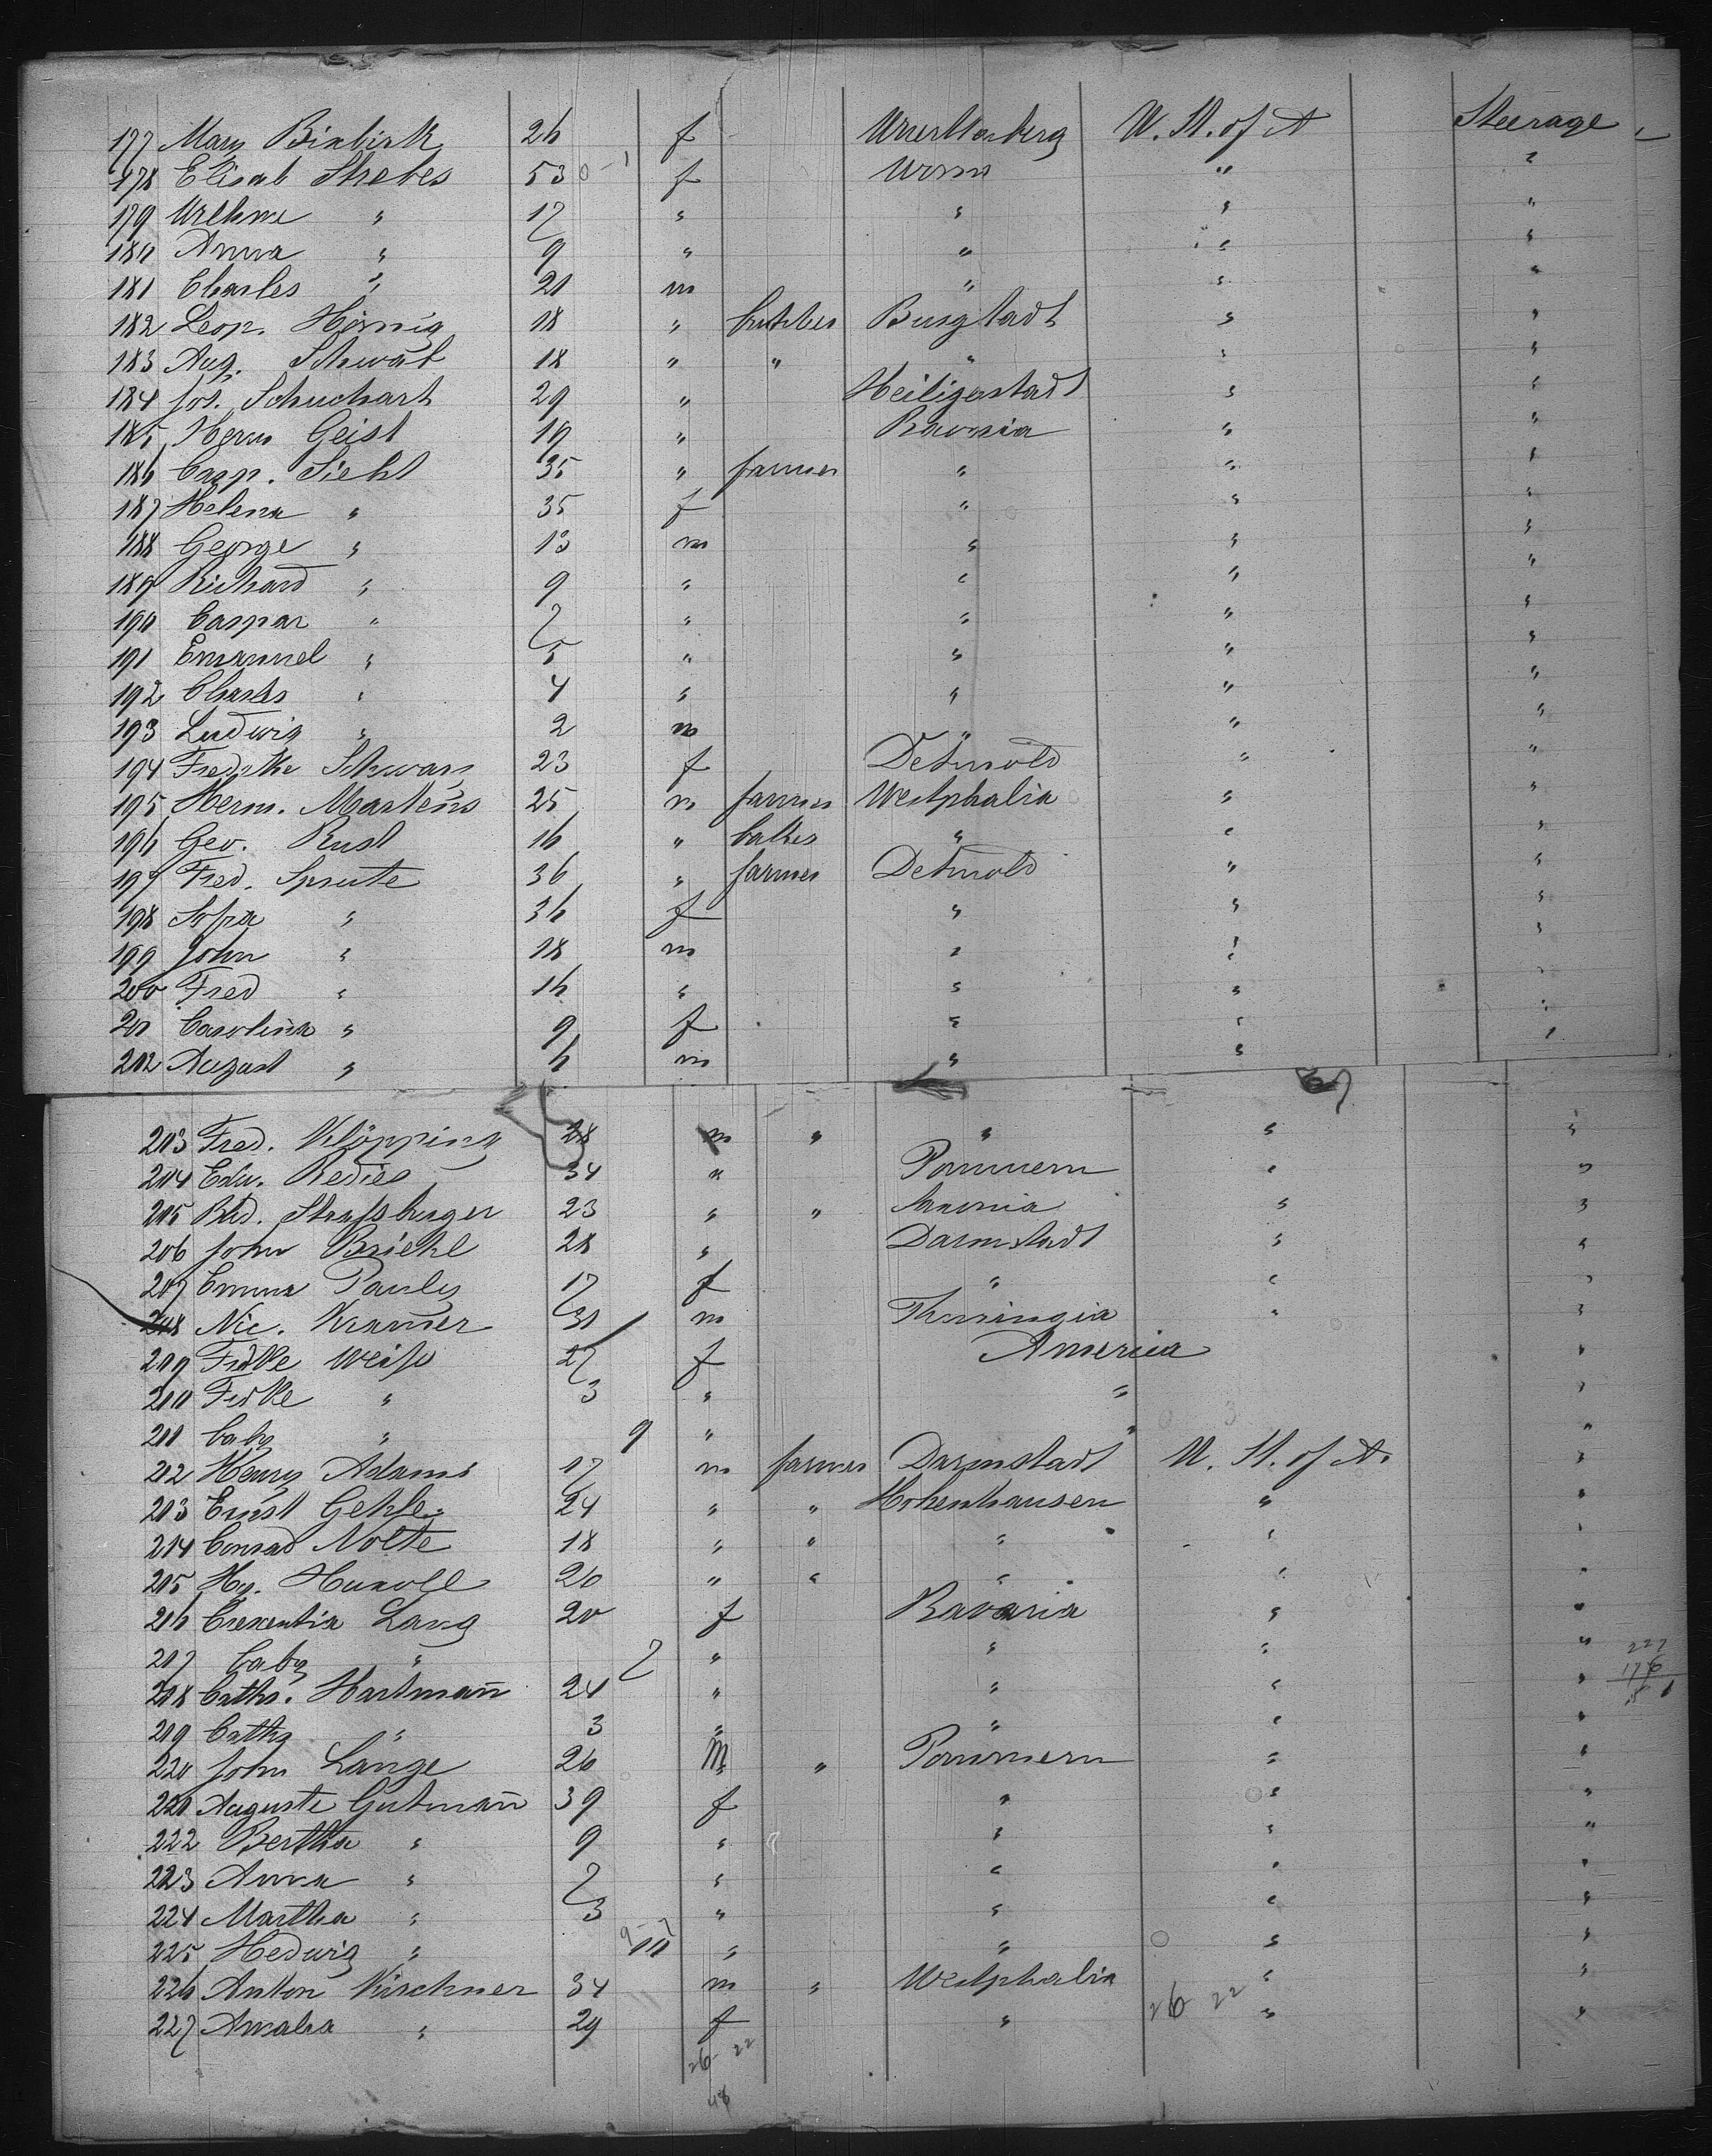 177 Mary Binbirk 26 f Wuerttemberg U. St. of A Steerage
178 Elisab Strebes 53 f Worms " "
179 Wilhme " 17 " " " "
180 Anna " 9 " " " "
181 Charles " 21 m " " "
182 Leop. Hörnig 18 " butcher Burgstadt " "
183 Aug. Schwab 18 " " " " "
184 Jos. Schuchart 29 " Heiligenstadt " "
185 Herm Geist 19 " Bavaria " "
186 Casp. Siehl 35 " farmer " " "
187 Helena " 35 f " " "
188 George " 13 m " " "
189 Richard " 9 " " " "
190 Caspar " 7 " " " "
191 Emanuel " 5 " " " "
192 Charles " 4 " " " "
193 Ludwig " 2 m " " "
194 Fredrke Schwarz 23 f Detmold " "
195 Herm. Martens 25 m farmer Westphalia " "
196 Geo. Rust 16 " baker " " "
197 Fred. Sprute 36 " farmer Detmold " "
198 Sofia " 36 f " " "
199 John " 18 m " " "
200 Fred " 16 " " " "
201 Carolina " 9 f " " "
202 August " 6 m " " "
203 Fred. Klöpping 28 m " " " "
204 Edw. Redies 34 " Pommern " "
205 Rud. Strassburger 23 " " Saxonia " "
206 John Briehl 28 " Darmstadt " "
207 Emma Pauly 17 f " " "
208 Nic. Kramer 31 m Thuringia " "
209 Fredke Weiss 27 f America "
210 Fredke " 3 " " "
211 baby " 9 " " "
212 Henry Adams 17 m farmer Darmstadt U. St. of A. "
213 Ernst Gehle 24 " " Hohenhausen " "
214 Conrad Nolte 18 " " " " "
215 Hy. Hunoll 20 " " " " "
216 Crescentia Lang 20 f Bavaria " "
217 baby " 7 " " " "
218 Cathr. Hartmann 24 " " " "
219 Cathr " 3 " " " "
220 John Lange 26 M " Pommern " "
221 Auguste Gutmann 39 f " " "
222 Bertha " 9 " " " "
223 Anna " 7 " " " "
224 Martha " 3 " " " "
225 Hedwig " 10 " " " "
226 Anton Kirschner 34 m " Westphalia " "
227 Amalia " 29 f " " "
26 22
26 22
48
227
176
51